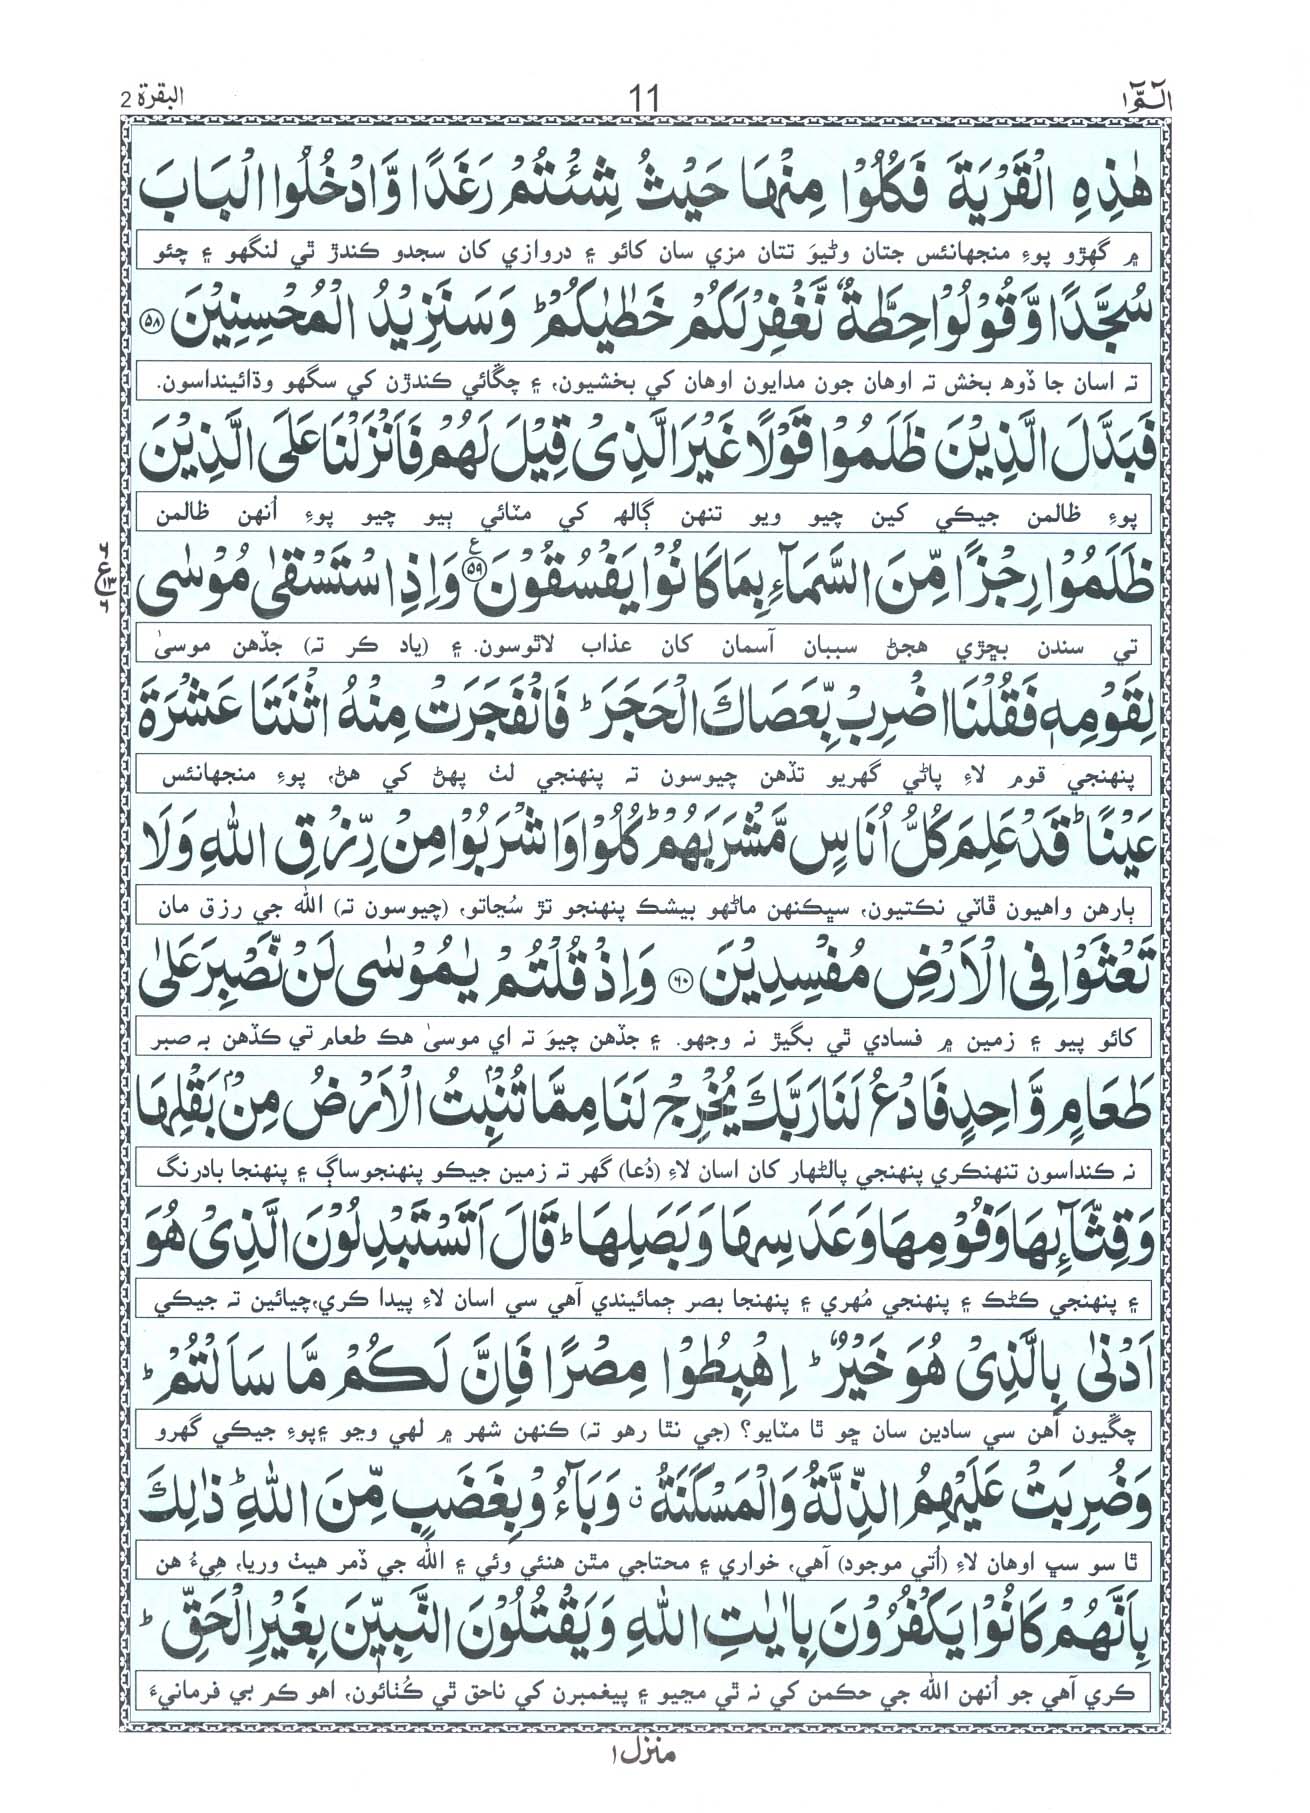 البقرة 2
11
الٓـمّٓ ا
هٰذِهِ الْقَرْيَةَ فَكُلُوْا مِنْهَا حَيْثُ شِئْتُمْ رَغَدًا وَّادْخُلُوا الْبَابَ
۾ گهڙو پوءِ منجهانئس جتان وڻيوَ تتان مزي سان کائو ۽ دروازي کان سجدو ڪندڙ ٿي لنگهو ۽ چئو
سُجَّدًا وَّقُوْلُوْا حِطَّةٌ نَّغْفِرْ لَكُمْ خَطٰيٰكُمْ ؕ وَسَنَزِيْدُ الْمُحْسِنِيْنَ ۝۵۸
تہ اسان جا ڏوھ بخش تہ اوهان جون مدايون اوهان کي بخشيون، ۽ چڱائي ڪندڙن کي سگهو وڌائينداسون.
فَبَدَّلَ الَّذِيْنَ ظَلَمُوْا قَوْلًا غَيْرَ الَّذِىْ قِيْلَ لَهُمْ فَاَنْزَلْنَا عَلَى الَّذِيْنَ
پوءِ ظالمن جيڪي کين چيو ويو تنهن ڳالهہ کي مٽائي ٻيو چيو پوءِ اُنهن ظالمن
ظَلَمُوْا رِجْزًا مِّنَ السَّمَآءِ بِمَا كَانُوْا يَفْسُقُوْنَ ۝۵۹ ع وَاِذِ اسْتَسْقٰى مُوْسٰى
تي سندن بڇڙي هجڻ سببان آسمان کان عذاب لاٿوسون. ۽ (ياد ڪر تہ) جڏهن موسيٰ
لِقَوْمِهٖ فَقُلْنَا اضْرِبْ بِّعَصَاكَ الْحَجَرَ ؕ فَانْفَجَرَتْ مِنْهُ اثْنَتَا عَشْرَةَ
پنهنجي قوم لاءِ پاڻي گهريو تڏهن چيوسون تہ پنهنجي لٺ پهڻ کي هڻ، پوءِ منجهانئس
عَيْنًا ؕ قَدْ عَلِمَ كُلُّ اُنَاسٍ مَّشْرَبَهُمْ ؕ كُلُوْا وَاشْرَبُوْا مِنْ رِّزْقِ اللّٰهِ وَلَا
ٻارهن واهيون ڦاٽي نڪتيون، سڀڪنهن ماڻهو بيشڪ پنهنجو تڙ سُڃاتو، (چيوسون تہ) الله جي رزق مان
تَعْثَوْا فِى الْاَرْضِ مُفْسِدِيْنَ ۝۶۰ وَاِذْ قُلْتُمْ يٰمُوْسٰى لَنْ نَّصْبِرَ عَلٰى
کائو پيو ۽ زمين ۾ فسادي ٿي بگيڙ نہ وجهو. ۽ جڏهن چيوَ تہ اي موسيٰ هڪ طعام تي ڪڏهن بہ صبر
طَعَامٍ وَّاحِدٍ فَادْعُ لَنَا رَبَّكَ يُخْرِجْ لَنَا مِمَّا تُنْۢبِتُ الْاَرْضُ مِنْۢ بَقْلِهَا
نہ ڪنداسون تنهنڪري پنهنجي پالڻهار کان اسان لاءِ (دُعا) گهر تہ زمين جيڪو پنهنجوساڳ ۽ پنهنجا بادرنگ
وَقِثَّآئِهَا وَفُوْمِهَا وَعَدَسِهَا وَبَصَلِهَا ؕ قَالَ اَتَسْتَبْدِلُوْنَ الَّذِىْ هُوَ
۽ پنهنجي ڪڻڪ ۽ پنهنجي مُهري ۽ پنهنجا بصر ڄمائيندي آهي سي اسان لاءِ پيدا ڪري، چيائين تہ جيڪي
اَدْنٰى بِالَّذِىْ هُوَ خَيْرٌ ؕ اِهْبِطُوْا مِصْرًا فَاِنَّ لَكُمْ مَّا سَاَلْتُمْ ؕ
چڱيون اُهن سي سادين سان ڇو ٿا مٽايو؟ (جي نٿا رهو تہ) ڪنهن شهر ۾ لهي وڃو ۽پوءِ جيڪي گهرو
وَضُرِبَتْ عَلَيْهِمُ الذِّلَّةُ وَالْمَسْكَنَةُ ۗ وَبَآءُوْ بِغَضَبٍ مِّنَ اللّٰهِ ؕ ذٰلِكَ
ٿا سو سڀ اوهان لاءِ (اُتي موجود) آهي، خواري ۽ محتاجي مٿن هنئي وئي ۽ الله جي ڏمر هيٺ وريا، هِيءُ هن
بِاَنَّهُمْ كَانُوْا يَكْفُرُوْنَ بِاٰيٰتِ اللّٰهِ وَيَقْتُلُوْنَ النَّبِيّٖنَ بِغَيْرِ الْحَقِّ ؕ
ڪري آهي جو اُنهن الله جي حڪمن کي نہ ٿي مڃيو ۽ پيغمبرن کي ناحق ٿي ڪُٺائون، اهو ڪم بي فرمانيءَ
منزل ا